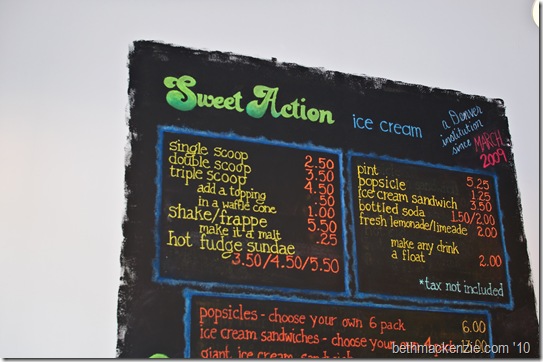 Sweet Action ice cream
a Denver
institution
since MARCH
2009
single scoop 2.50
double scoop 3.50
triple scoop 4.50
add a topping .50
in a waffle cone 1.00
shake/frappe 5.50
make it a malt .25
hot fudge sundae
3.50/4.50/5.50
pint 5.25
popsicle 1.25
ice cream sandwich 3.50
bottled soda 1.50/2.00
fresh lemonade/limeade 2.00
make any drink
a float 2.00
*tax not included
popsicles - choose your own 6 pack 6.00
ice cream sandwiches - choose your own 4
giant ice cream sandwich
bethmackenzie.com '10